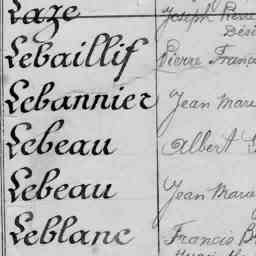 Laze Joseph Pierre
Dési
Lebaillif Pierre Franç
Lebannier Jean Marc
Lebeau Albert
Lebeau Jean Marc
Leblanc Francis B